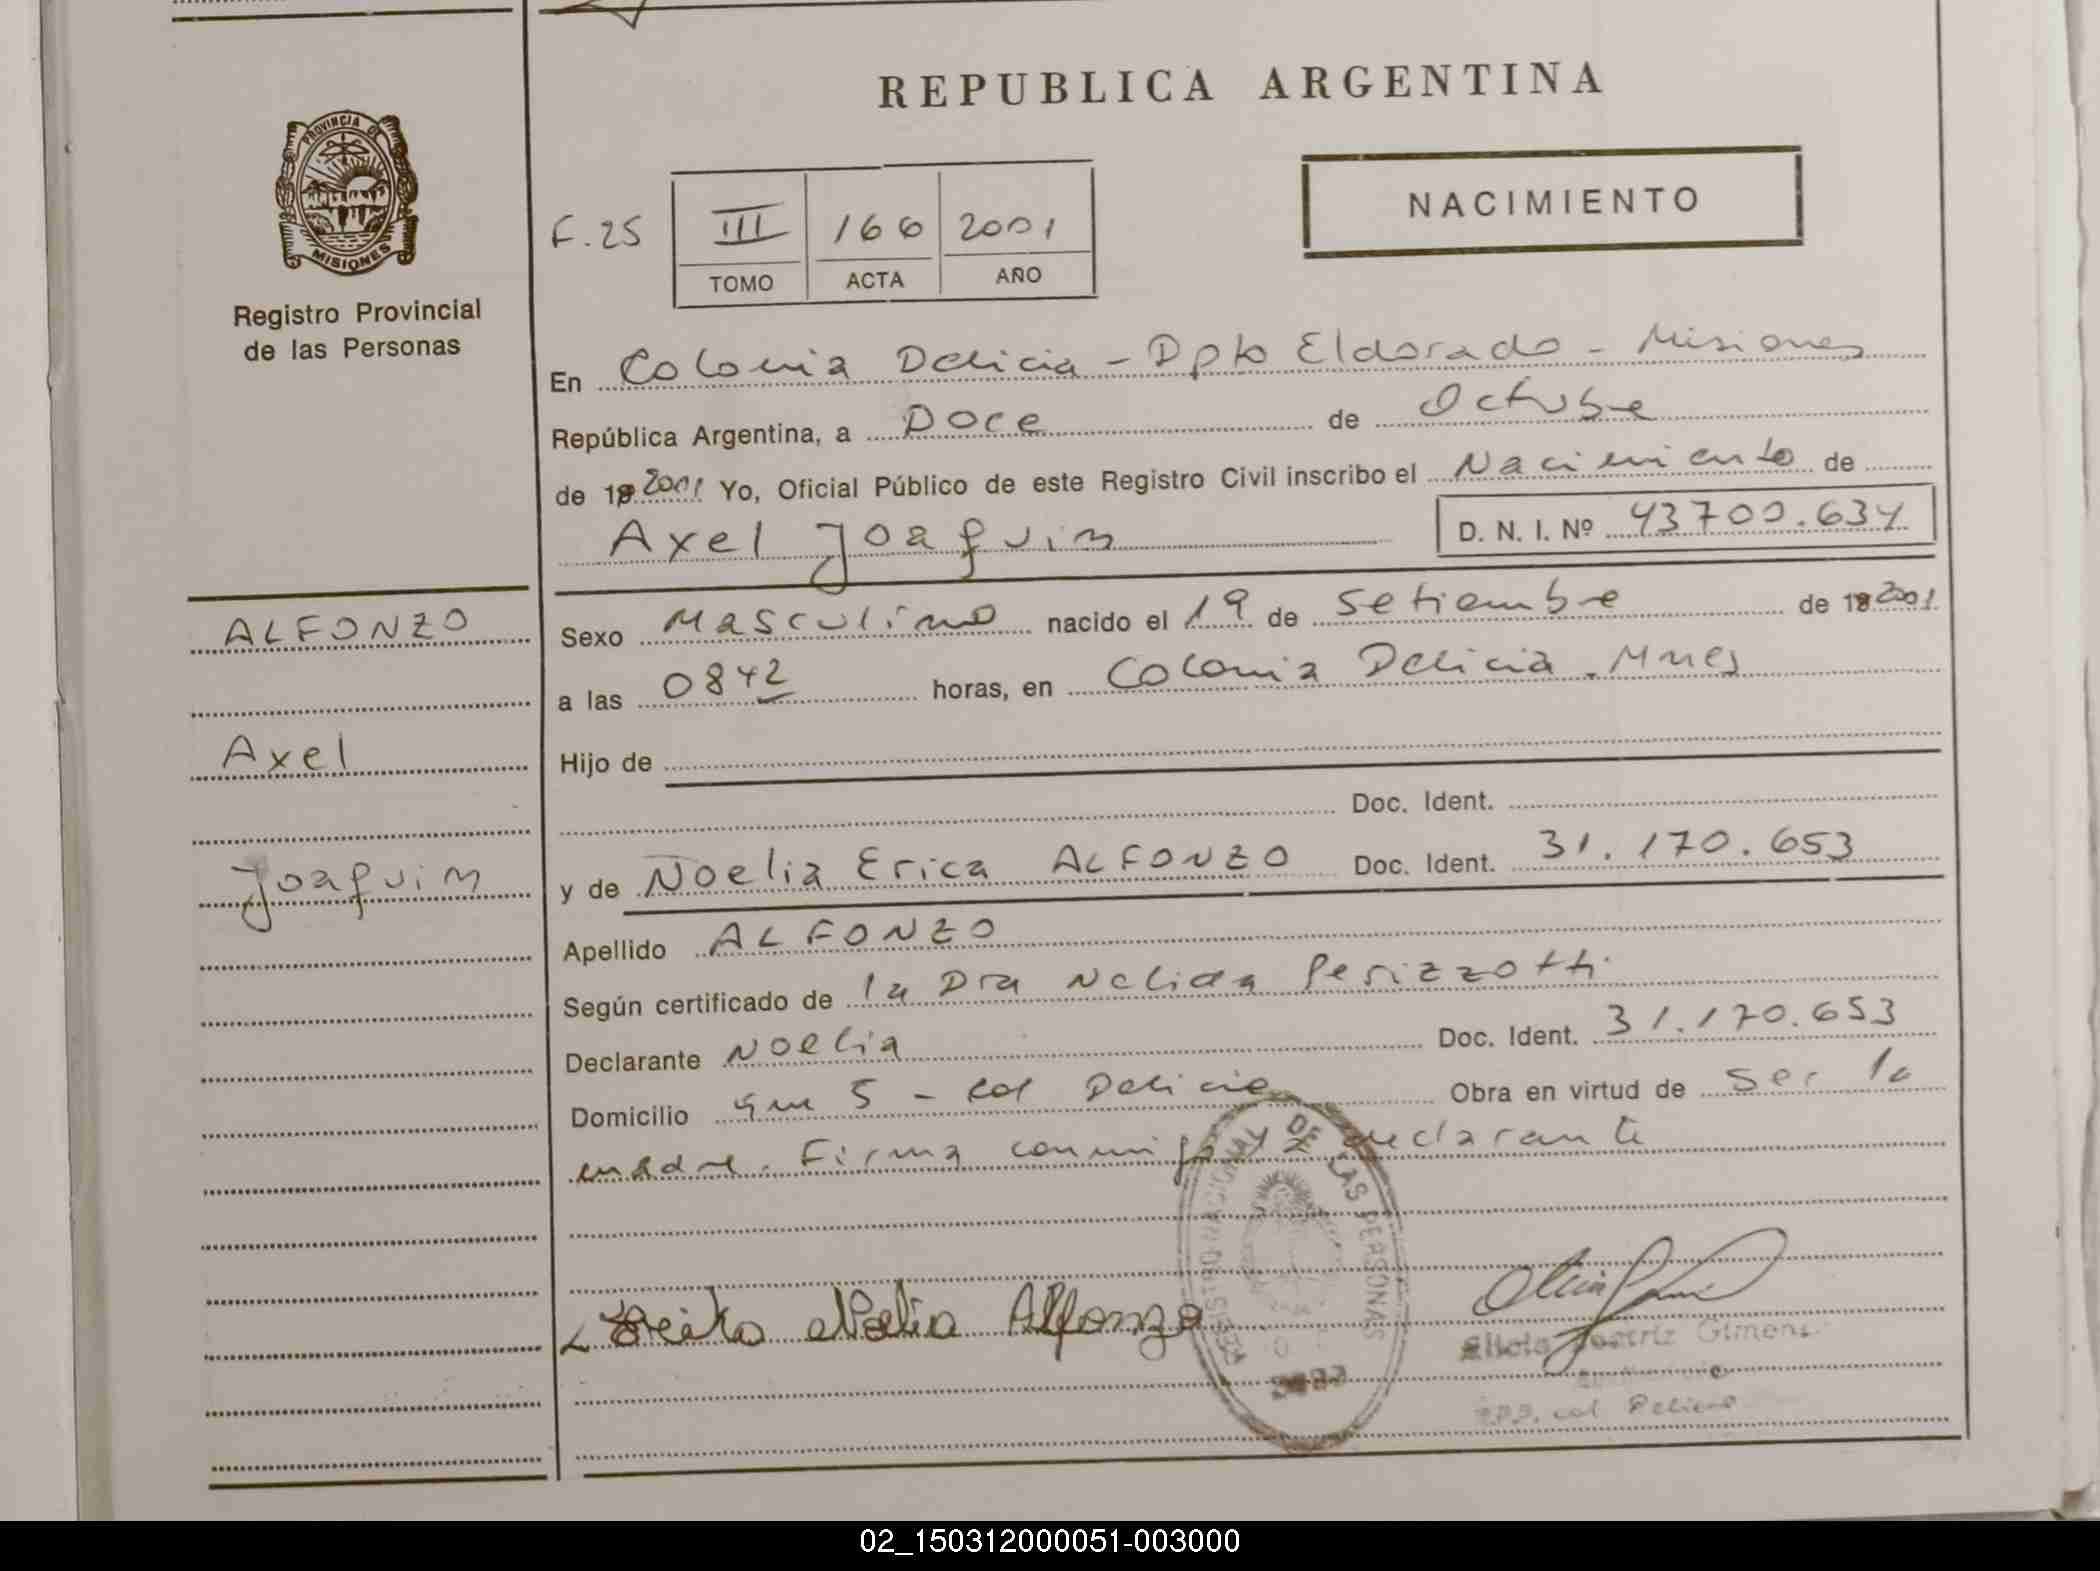 REPUBLICA ARGENTINA
PROVINCIA DE MISIONES
Registro Provincial
de las Personas
NACIMIENTO
F.25 III 166 2001
TOMO ACTA AÑO
En Colonia Delicia - Dpto Eldorado - Misiones
República Argentina, a Doce de Octubre
de 19 2001 Yo, Oficial Público de este Registro Civil inscribo el Nacimiento de
Axel Joaquin D. N. I. Nº 43700.634
ALFONZO
Axel
Joaquin
Sexo Masculino nacido el 19 de Setiembre de 19 2001
a las 0842 horas, en Colonia Delicia. Mnes
Hijo de
Doc. Ident.
y de Noelia Erica ALFONZO Doc. Ident. 31.170.653
Apellido ALFONZO
Según certificado de la Dra Nelida Perizzotti
Declarante Noelia Doc. Ident. 31.170.653
Domicilio Km 5 - Col Delicia Obra en virtud de ser la
madre. Firma conmigo declarante
DE LAS PERSONAS
Erika Noelia Alfonzo
Beatriz Gimenez
Col Delicia
02_150312000051-003000